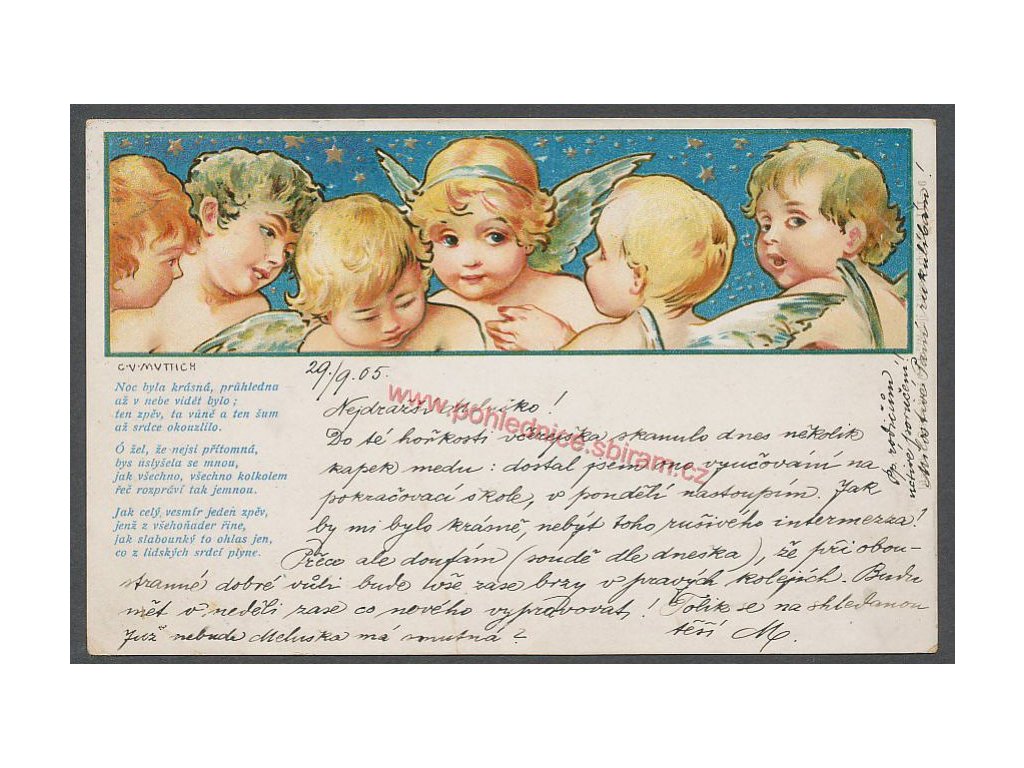 C·V·MVTTICH
Noc byla krásná, průhledna
až v nebe vidět bylo;
ten zpěv, ta vůně a ten šum
až srdce okouzlilo.
Ó žel, že nejsi přítomná,
bys uslyšela se mnou,
jak všechno, všechno kolkolem
řeč rozpráví tak jemnou.
Jak celý vesmír jeden zpěv,
jenž z všehoňader řine,
jak slabounký to ohlas jen,
co z lidských srdcí plyne.
29/9.05.
Nejdražší !
Do té hořkosti včerejška skanulo dnes několik
kapek medu: dostal jsem vyučování na
pokračovací škole, v pondělí nastoupím. Jak
by mi bylo krásně, nebýt toho rušivého intermezza!
Přece ale doufám (soudě dle dneška), že při obou-
stranné dobré vůli bude vše zase brzy v pravých kolejích. Budu
mít v neděli zase co nového vypravovat! Tolik se na shledanou
Juž nebude Meluska má smutna? těší M.
rodičům
uctivé poručení!
Milostivé Paní ruku líbám!
www.pohlednice.sbiram.cz